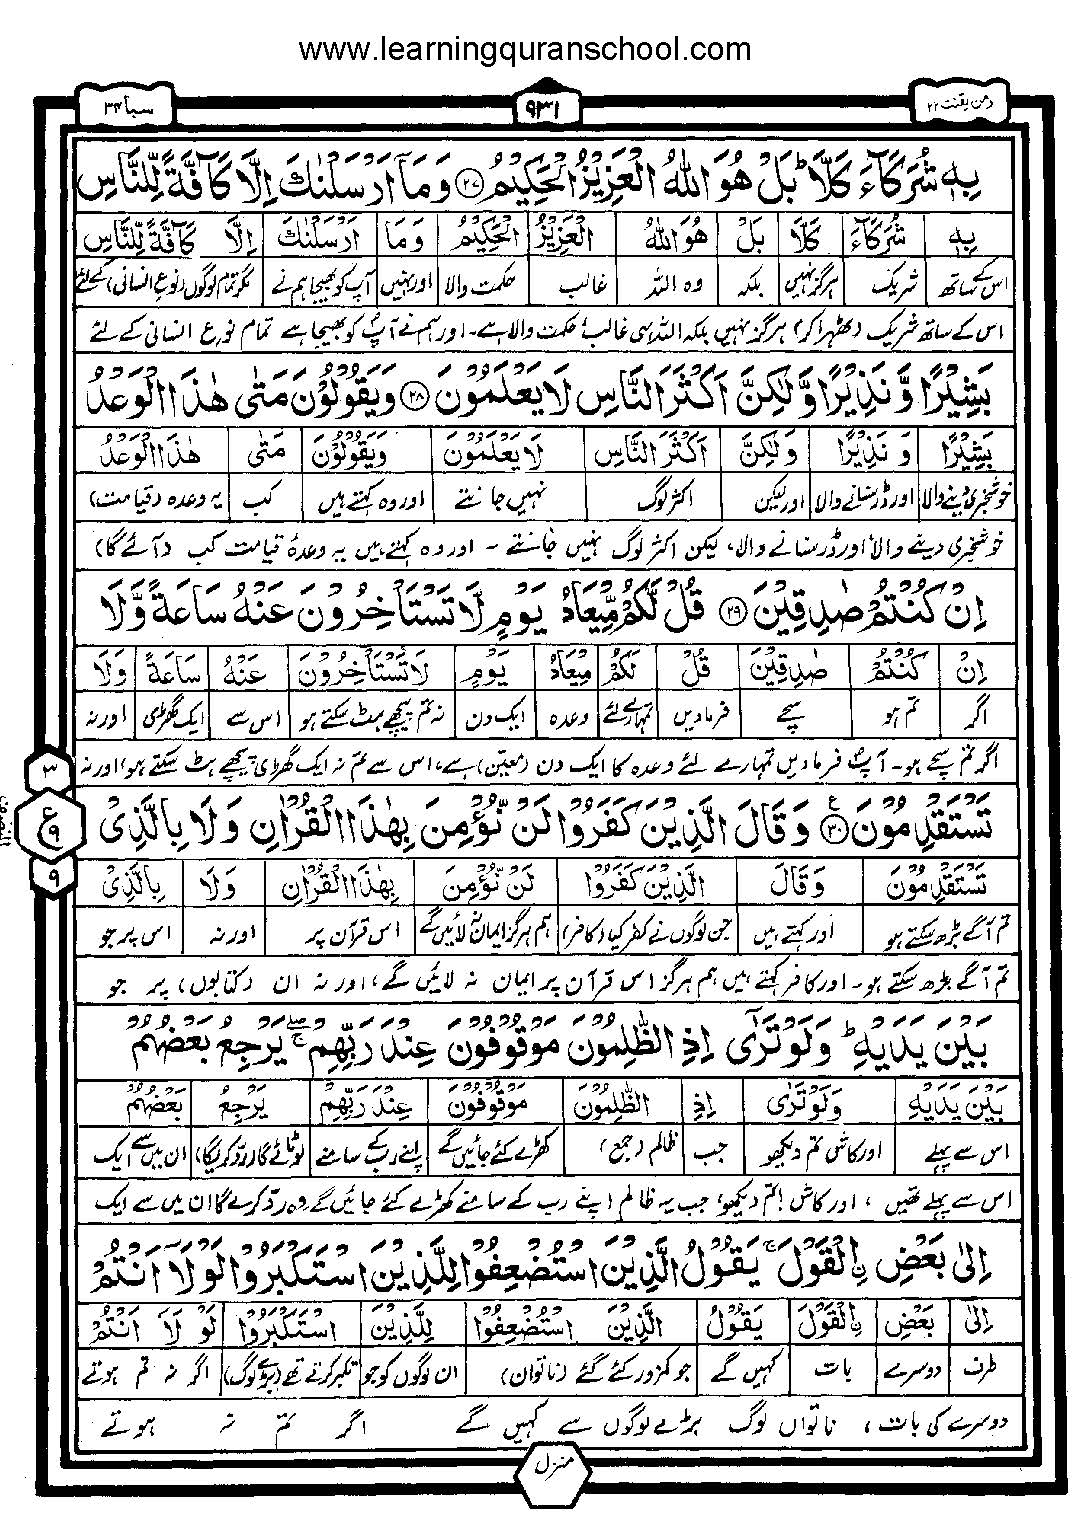 www.learningquranschool.com
ومن یقنت ۲۲
۹۳۱
سبا ۳۴
بِهٖ شُرَكَآءَ كَلَّا ؕ بَلْ هُوَ اللّٰهُ الْعَزِيْزُ الْحَكِيْمُ ۝۲۷ وَمَآ اَرْسَلْنٰكَ اِلَّا كَآفَّةً لِّلنَّاسِ
بِهٖ شُرَكَآءَ كَلَّا بَلْ هُوَ اللّٰهُ الْعَزِيْزُ الْحَكِيْمُ وَمَا اَرْسَلْنٰكَ اِلَّا كَآفَّةً لِّلنَّاسِ
اس کے ساتھ شریک ہرگز نہیں بلکہ وہ اللہ غالب حکمت والا اور نہیں آپ کو بھیجا ہم نے مگر تمام لوگوں (نوع انسانی) کے لئے
اس کے ساتھ شریک (ٹھہرا کر) ہرگز نہیں بلکہ اللہ ہی غالب حکمت والا ہے۔ اور ہم نے آپؐ کو بھیجا ہے تمام نوع انسانی کے لئے
بَشِيْرًا وَّنَذِيْرًا وَّلٰكِنَّ اَكْثَرَ النَّاسِ لَا يَعْلَمُوْنَ ۝۲۸ وَيَقُوْلُوْنَ مَتٰى هٰذَا الْوَعْدُ
بَشِيْرًا وَنَذِيْرًا وَلٰكِنَّ اَكْثَرَ النَّاسِ لَا يَعْلَمُوْنَ وَيَقُوْلُوْنَ مَتٰى هٰذَا الْوَعْدُ
خوشخبری دینے والا اور ڈر سنانے والا اور لیکن اکثر لوگ نہیں جانتے اور وہ کہتے ہیں کب یہ وعدہ (قیامت)
خوشخبری دینے والا اور ڈر سنانے والا، لیکن اکثر لوگ نہیں جانتے ۔ اور وہ کہتے ہیں یہ وعدۂ قیامت کب (آئے گا)
اِنْ كُنْتُمْ صٰدِقِيْنَ ۝۲۹ قُلْ لَّكُمْ مِّيْعَادُ يَوْمٍ لَّا تَسْتَاْخِرُوْنَ عَنْهُ سَاعَةً وَّلَا
اِنْ كُنْتُمْ صٰدِقِيْنَ قُلْ لَكُمْ مِيْعَادُ يَوْمٍ لَا تَسْتَاْخِرُوْنَ عَنْهُ سَاعَةً وَلَا
اگر تم ہو سچے فرما دیں تمہارے لئے وعدہ ایک دن نہ تم پیچھے ہٹ سکتے ہو اس سے ایک گھڑی اور نہ
اگر تم سچے ہو۔ آپؐ فرما دیں تمہارے لئے وعدہ کا ایک دن (معین) ہے، اس سے تم نہ ایک گھڑی پیچھے ہٹ سکتے ہو، اور نہ
تَسْتَقْدِمُوْنَ ۝۳۰ وَقَالَ الَّذِيْنَ كَفَرُوْا لَنْ نُّؤْمِنَ بِهٰذَا الْقُرْاٰنِ وَلَا بِالَّذِيْ
تَسْتَقْدِمُوْنَ وَقَالَ الَّذِيْنَ كَفَرُوْا لَنْ نُؤْمِنَ بِهٰذَا الْقُرْاٰنِ وَلَا بِالَّذِيْ
تم آگے بڑھ سکتے ہو اور کہتے ہیں جن لوگوں نے کفر کیا (کافر) ہم ہرگز ایمان نہ لائیں گے اس قرآن پر اور نہ اس پر جو
تم آگے بڑھ سکتے ہو۔ اور کافر کہتے ہیں ہم ہرگز اس قرآن پر ایمان نہ لائیں گے، اور نہ ان (کتابوں) پر جو
بَيْنَ يَدَيْهِ ؕ وَلَوْ تَرٰٓى اِذِ الظّٰلِمُوْنَ مَوْقُوْفُوْنَ عِنْدَ رَبِّهِمْ ۚ يَرْجِعُ بَعْضُهُمْ
بَيْنَ يَدَيْهِ وَلَوْ تَرٰى اِذِ الظّٰلِمُوْنَ مَوْقُوْفُوْنَ عِنْدَ رَبِّهِمْ يَرْجِعُ بَعْضُهُمْ
اس سے پہلے اور کاش تم دیکھو جب ظالم (جمع) کھڑے کئے جائیں گے اپنے رب کے سامنے لوٹائے گا (رد کریگا) ان میں سے ایک
اس سے پہلے تھیں، اور کاش! تم دیکھو، جب یہ ظالم اپنے رب کے سامنے کھڑے کئے جائیں گے وہ رد کرے گا ان میں سے ایک
اِلٰى بَعْضِ ِۨالْقَوْلَ ۚ يَقُوْلُ الَّذِيْنَ اسْتُضْعِفُوْا لِلَّذِيْنَ اسْتَكْبَرُوْا لَوْلَآ اَنْتُمْ
اِلٰى بَعْضِ ِۨالْقَوْلَ يَقُوْلُ الَّذِيْنَ اسْتُضْعِفُوْا لِلَّذِيْنَ اسْتَكْبَرُوْا لَوْ لَا اَنْتُمْ
طرف دوسرے بات کہیں گے جو کمزور کئے گئے (ناتواں) ان لوگوں کو جو تکبر کرتے تھے (بڑے لوگ) اگر نہ تم ہوتے
دوسرے کی بات، ناتواں لوگ بڑے لوگوں سے کہیں گے اگر تم نہ ہوتے
۳
ع
۹
۹
منزل